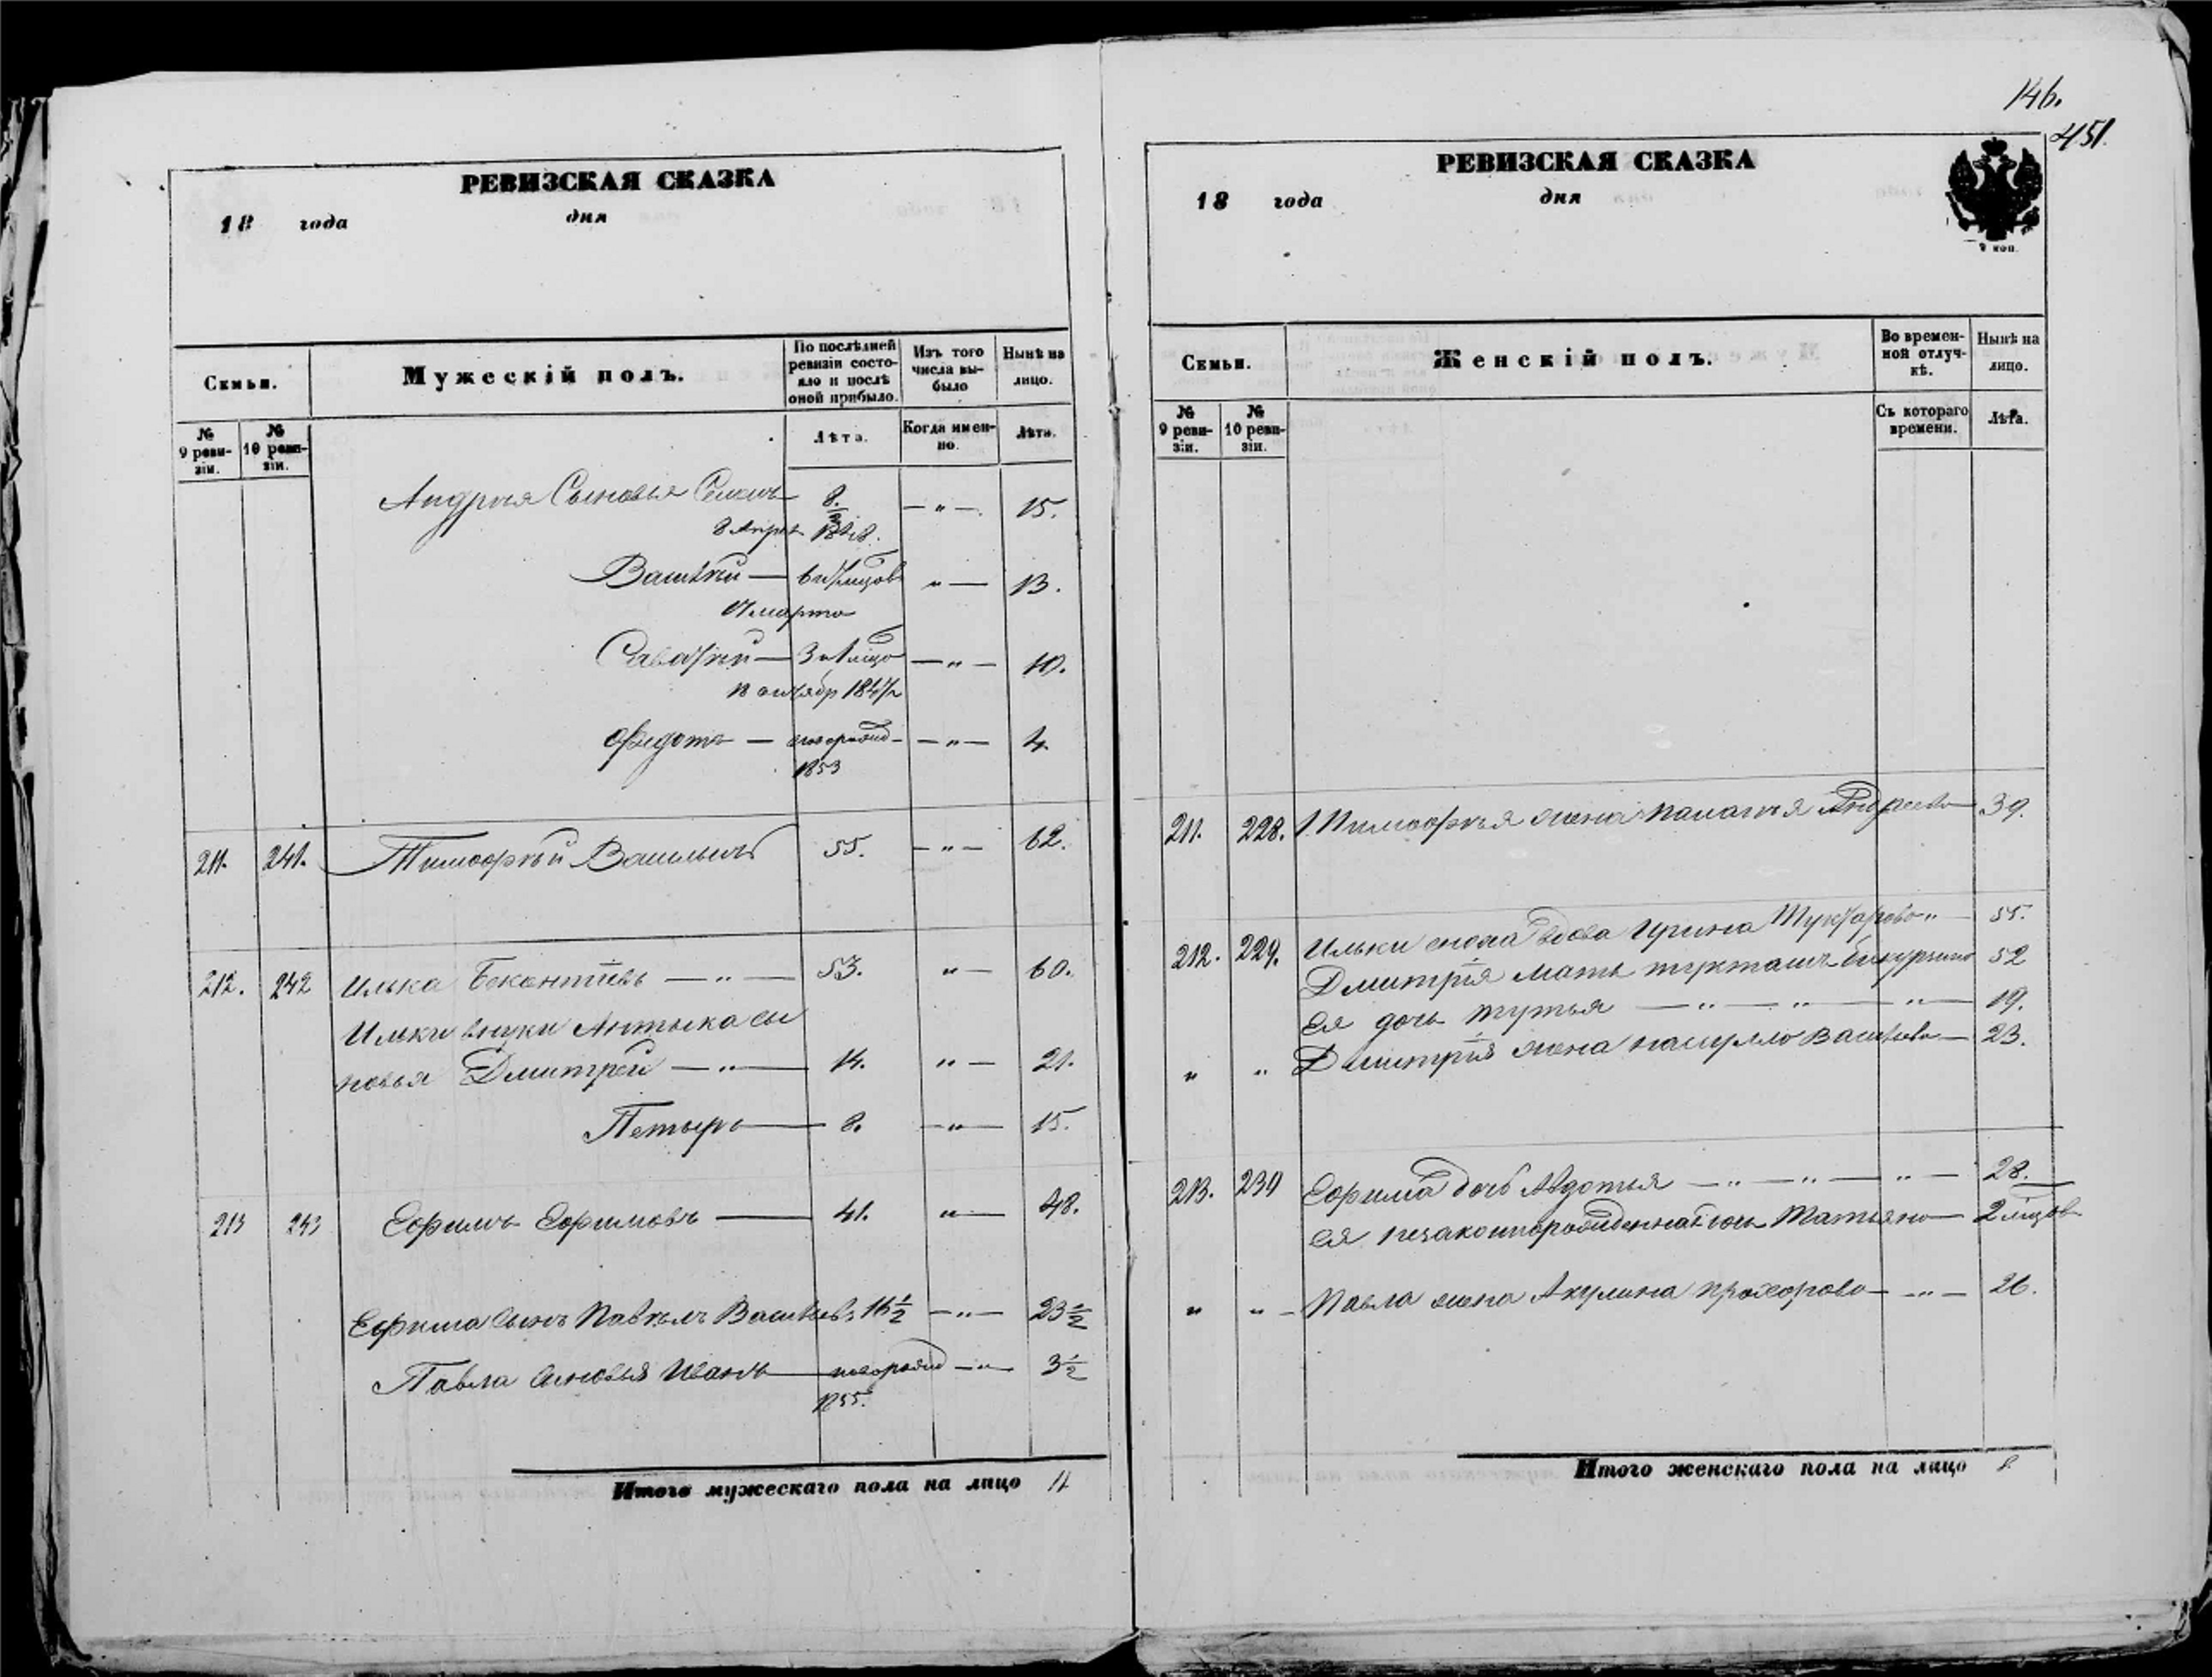 146.
451.
РЕВИЗСКАЯ СКАЗКА
18 года дня
Семьи.
Мужескій полъ.
По послѣдней ревизіи состояло и послѣ оной прибыло.
Изъ того числа выбыло
Нынѣ на лицо.
№ 9 ревизіи.
№ 10 ревизіи.
Лѣта.
Когда именно.
Лѣта.
Андрея Сыновья 8. — " — 15.
— " — 13.
марта
— " — 10.
Федотъ — новорожд — " — 4.
1853
211. 241. Тимофѣй Васильевъ 55. — " — 62.
212. 242 Илька — " — 53. " — 60.
Ильки внуки Антыка сы
новья Дмитрей — " — 14. " — 21.
Петыръ — 8. — " — 15.
213 243 Ефимъ Ефимовъ — 41. " — 48.
Ефима сынъ Павелъ Васильевъ 16½ — " — 23½
Павла сыновья Иванъ — новорожд — " — 3½
1855.
Итого мужескаго пола на лицо 11
РЕВИЗСКАЯ СКАЗКА
18 года дня
2 коп.
Семьи.
Женскій полъ.
Во временной отлучкѣ.
Нынѣ на лицо.
№ 9 ревизіи.
№ 10 ревизіи.
Съ котораго времени.
Лѣта.
211. 228. Тимофѣя жена Палагѣя Андреева — 39.
212. 229. Ильки вдова Ирина — 55.
Дмитрія мать 52
Ея дочь — " — " — " — 19.
" " Дмитрія жена — 23.
213. 230 Ефима дочь Авдотья — " — " — " — 28.
Ея незаконнорожденная дочь Татьяна — 2 мѣсяцов
" " — Павла жена Акулина Прохорова — " — 26.
Итого женскаго пола на лицо 8